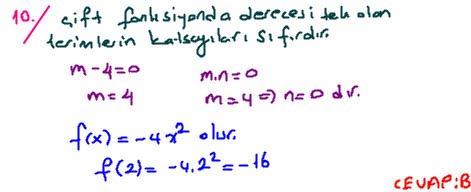 10. çift fonksiyonda derecesi tek olan
terimlerin katsayıları sıfırdır.
m-4=0 m.n=0
m=4 m=4 ⇒ n=0 dır.
f(x) = -4x² olur.
f(2) = -4.2² = -16
CEVAP:B